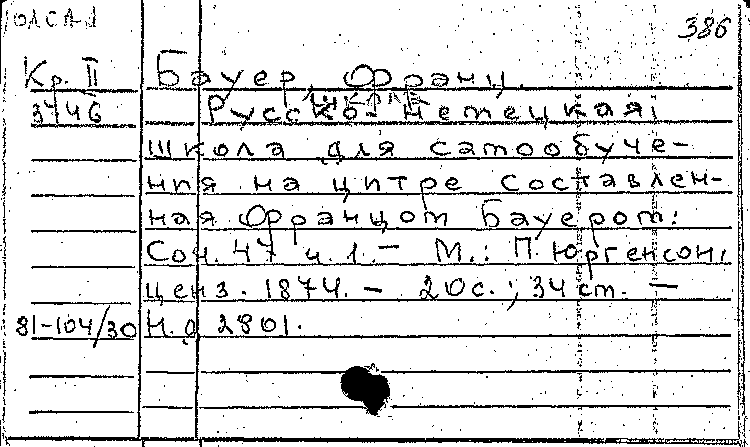 386
Кр. II Бауер, Франц.
3746 Русско-немецкая
школа для самообуче-
ния на цитре составлен-
ная Францом Бауером:
Соч. 47 ч. 1. — М.: П. Юргенсон,
ценз. 1874. — 20с.; 34 cm. —
81-104/30 Н.д 2801.